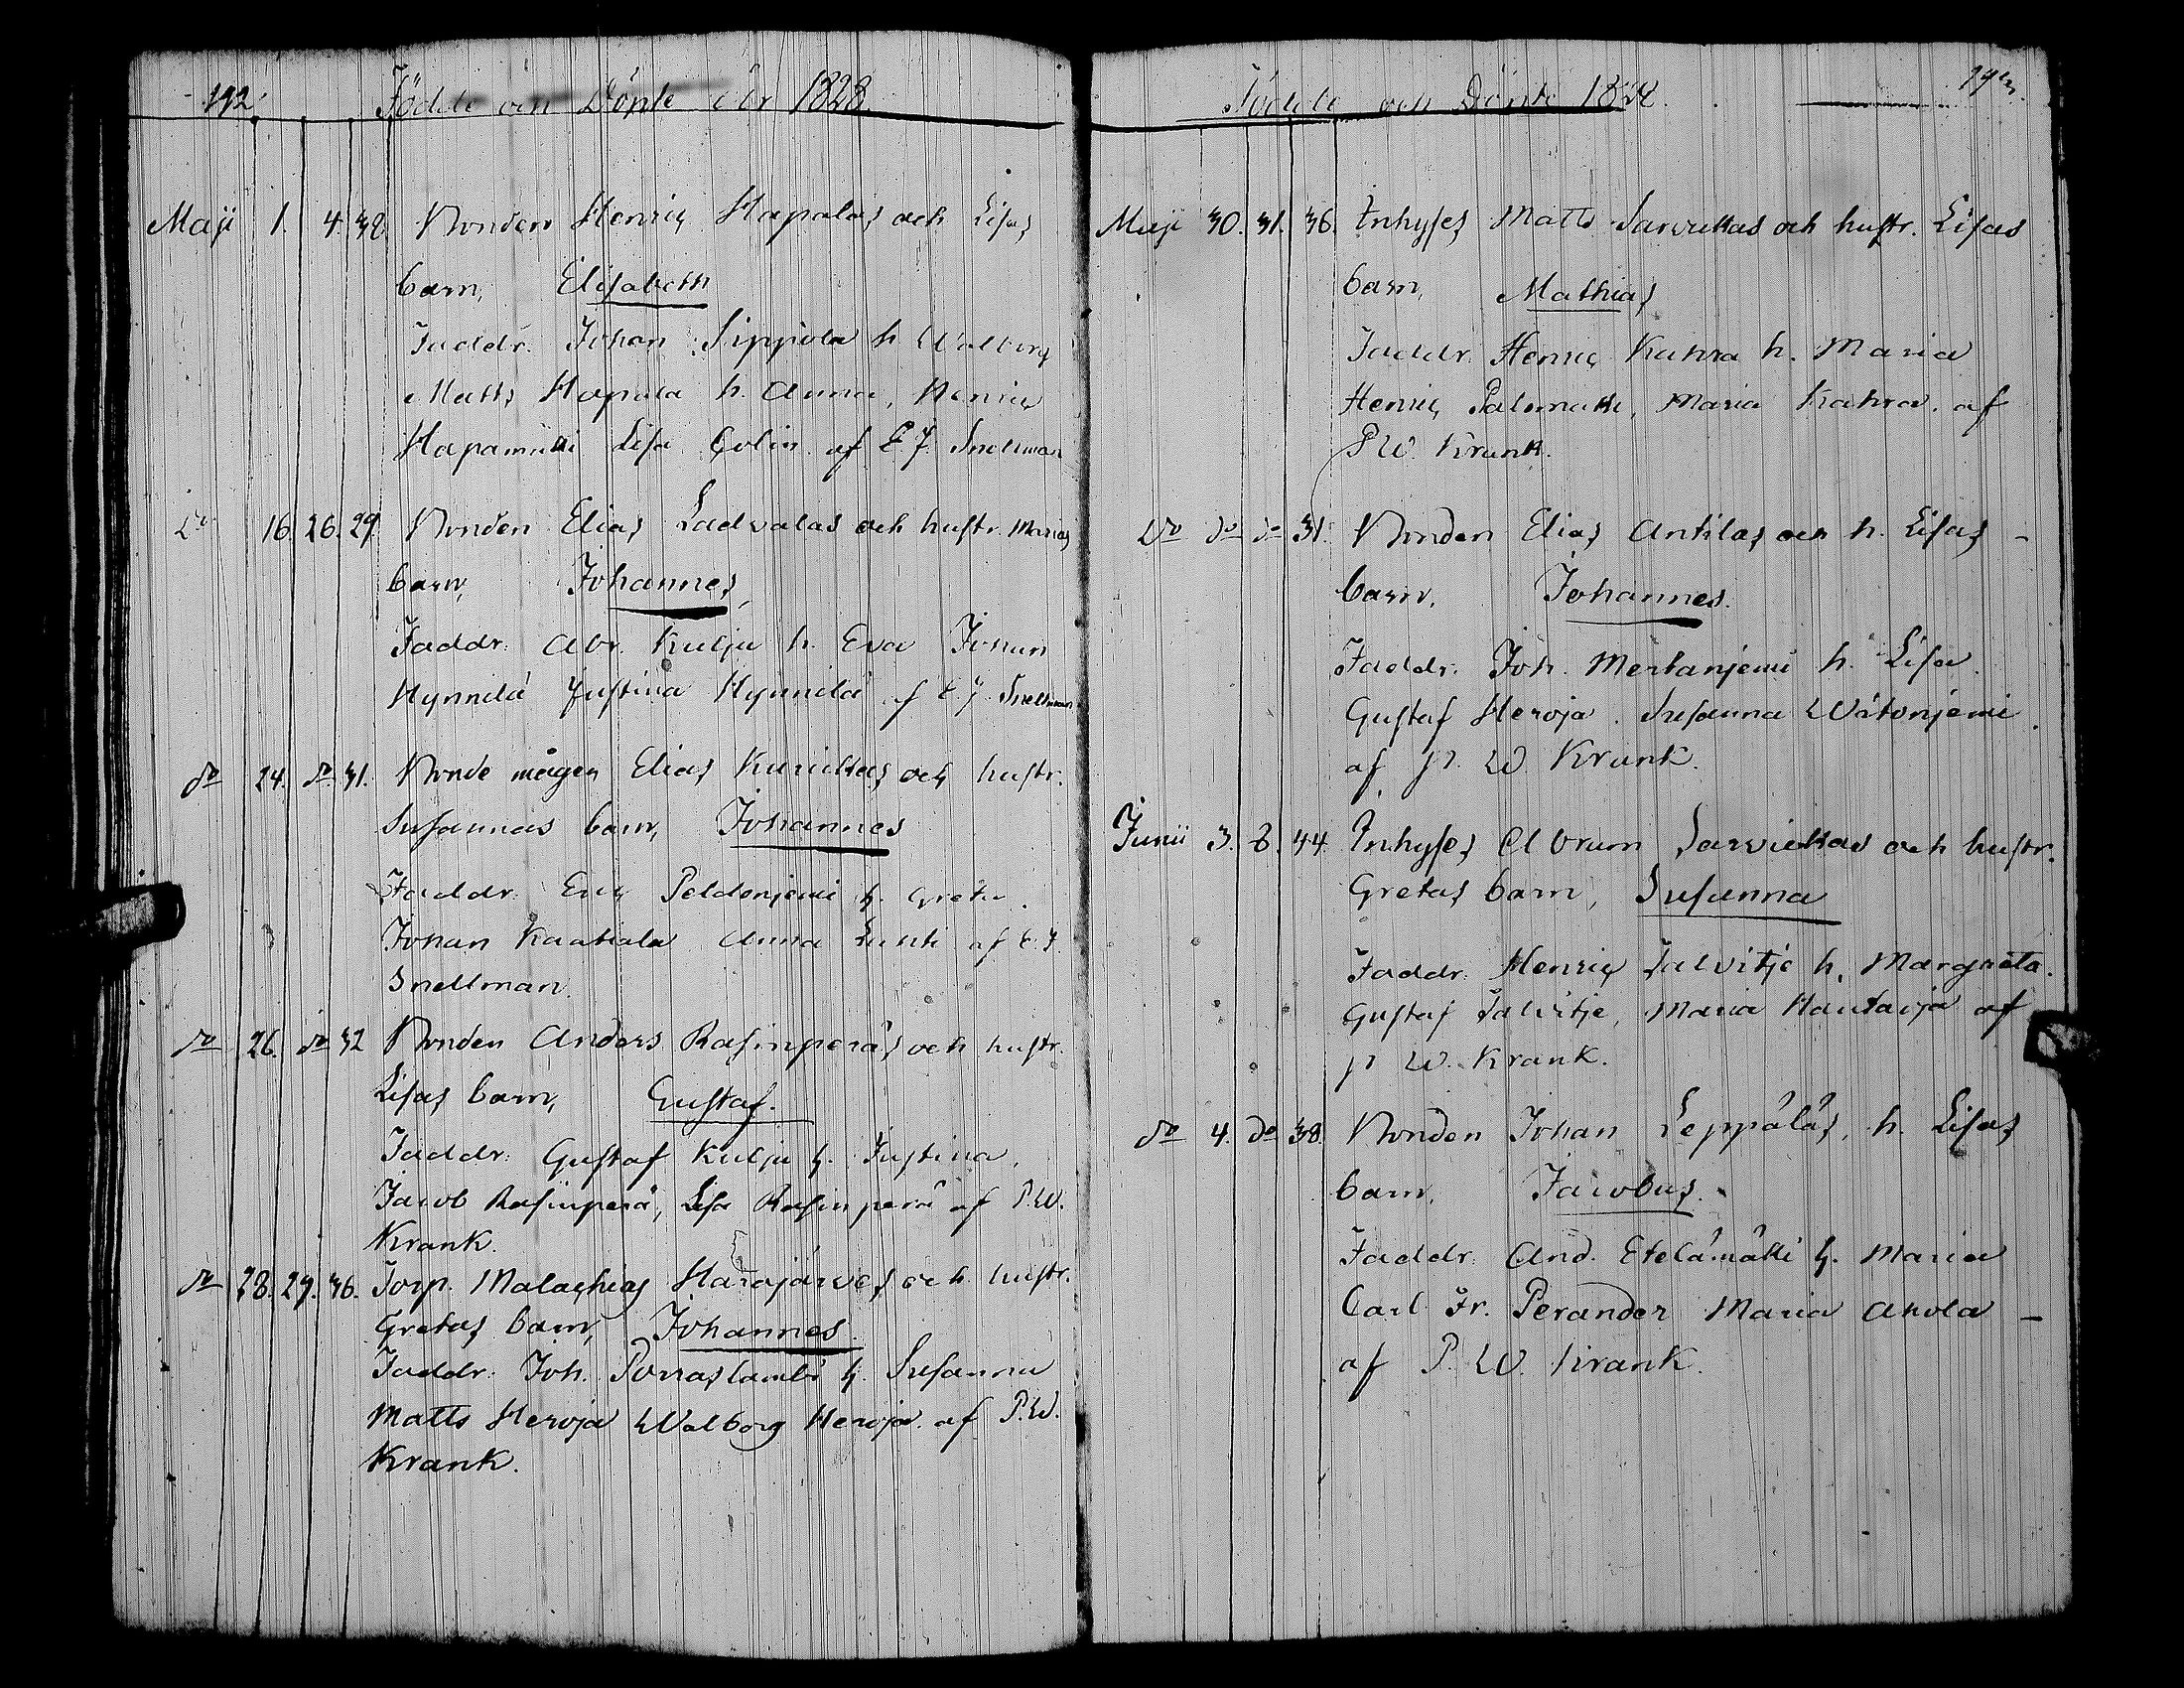 192. Födde och Döpte år 1828.
Maji 1. 4. 38. Bonden Henric Hapalas och Lisas
barn, Elisabeth
Faddr. Johan Sippola h. Walborg
Matts Hapala h. Anna, Henric
Hapamäki Lisa Golin af E. J. Snellman
Do 16. 26. 29. Bonden Elias Ladvalas och hustr. Marias
barn, Johannes
Faddr: Abr. Kulju h. Eva Johan
Hynnilä Justina Hynnilä af E. J. Snellman
do 24. do 31. Bonde mågen Elias Kuriikas och hustr.
Susannas barn, Johannes
Faddr: Eric Peldonjemi h. Greta.
Johan Kaatiala Anna Luhti af E. J.
Snellman.
do 26. do 32 Bonden Anders Rasinperäs och hustr.
Lisas barn, Gustaf.
Faddr: Gustaf Kulju h. Justina,
Jacob Rasinperä, Lisa Rasinperä af P. W.
Krank.
do 28. 29. 36. Torp. Malachias Harojärves och hustr.
Gretas barn, Johannes
Faddr: Joh. Porraslambi h. Susanna
Matts Heroja Walborg Heroja. af P. W.
Krank.
Födde och Döpte 1828. 193.
Maji 30. 31. 36. Inhyses Matts Sarvikas och hustr. Lisas
barn, Mathias
Faddr. Henric Kahra h. Maria
Henric Palomäki, Maria Kahra. af
P W. Krank.
Do do do 31. Bonden Elias Antilas och h. Lisas -
barn, Johannes.
Faddr: Joh. Mertanjemi h. Lisa
Gustaf Heroja. Susanna Wätonjemi
af P. W. Krank.
Junii 3. 8. 44. Inhyses Abram Sarvikkas och hustr.
Gretas barn, Susanna
Faddr: Henric Salvitje h. Margareta.
Gustaf Salvitje, Maria Hautaoja af
P W. Krank.
do 4. do 38. Bonden Johan Leppäläs, h. Lisas
barn, Jacobus.
Faddr: And. Etelämäki h. Maria
Carl Fr. Perander Maria Ahola -
af P. W. Krank.